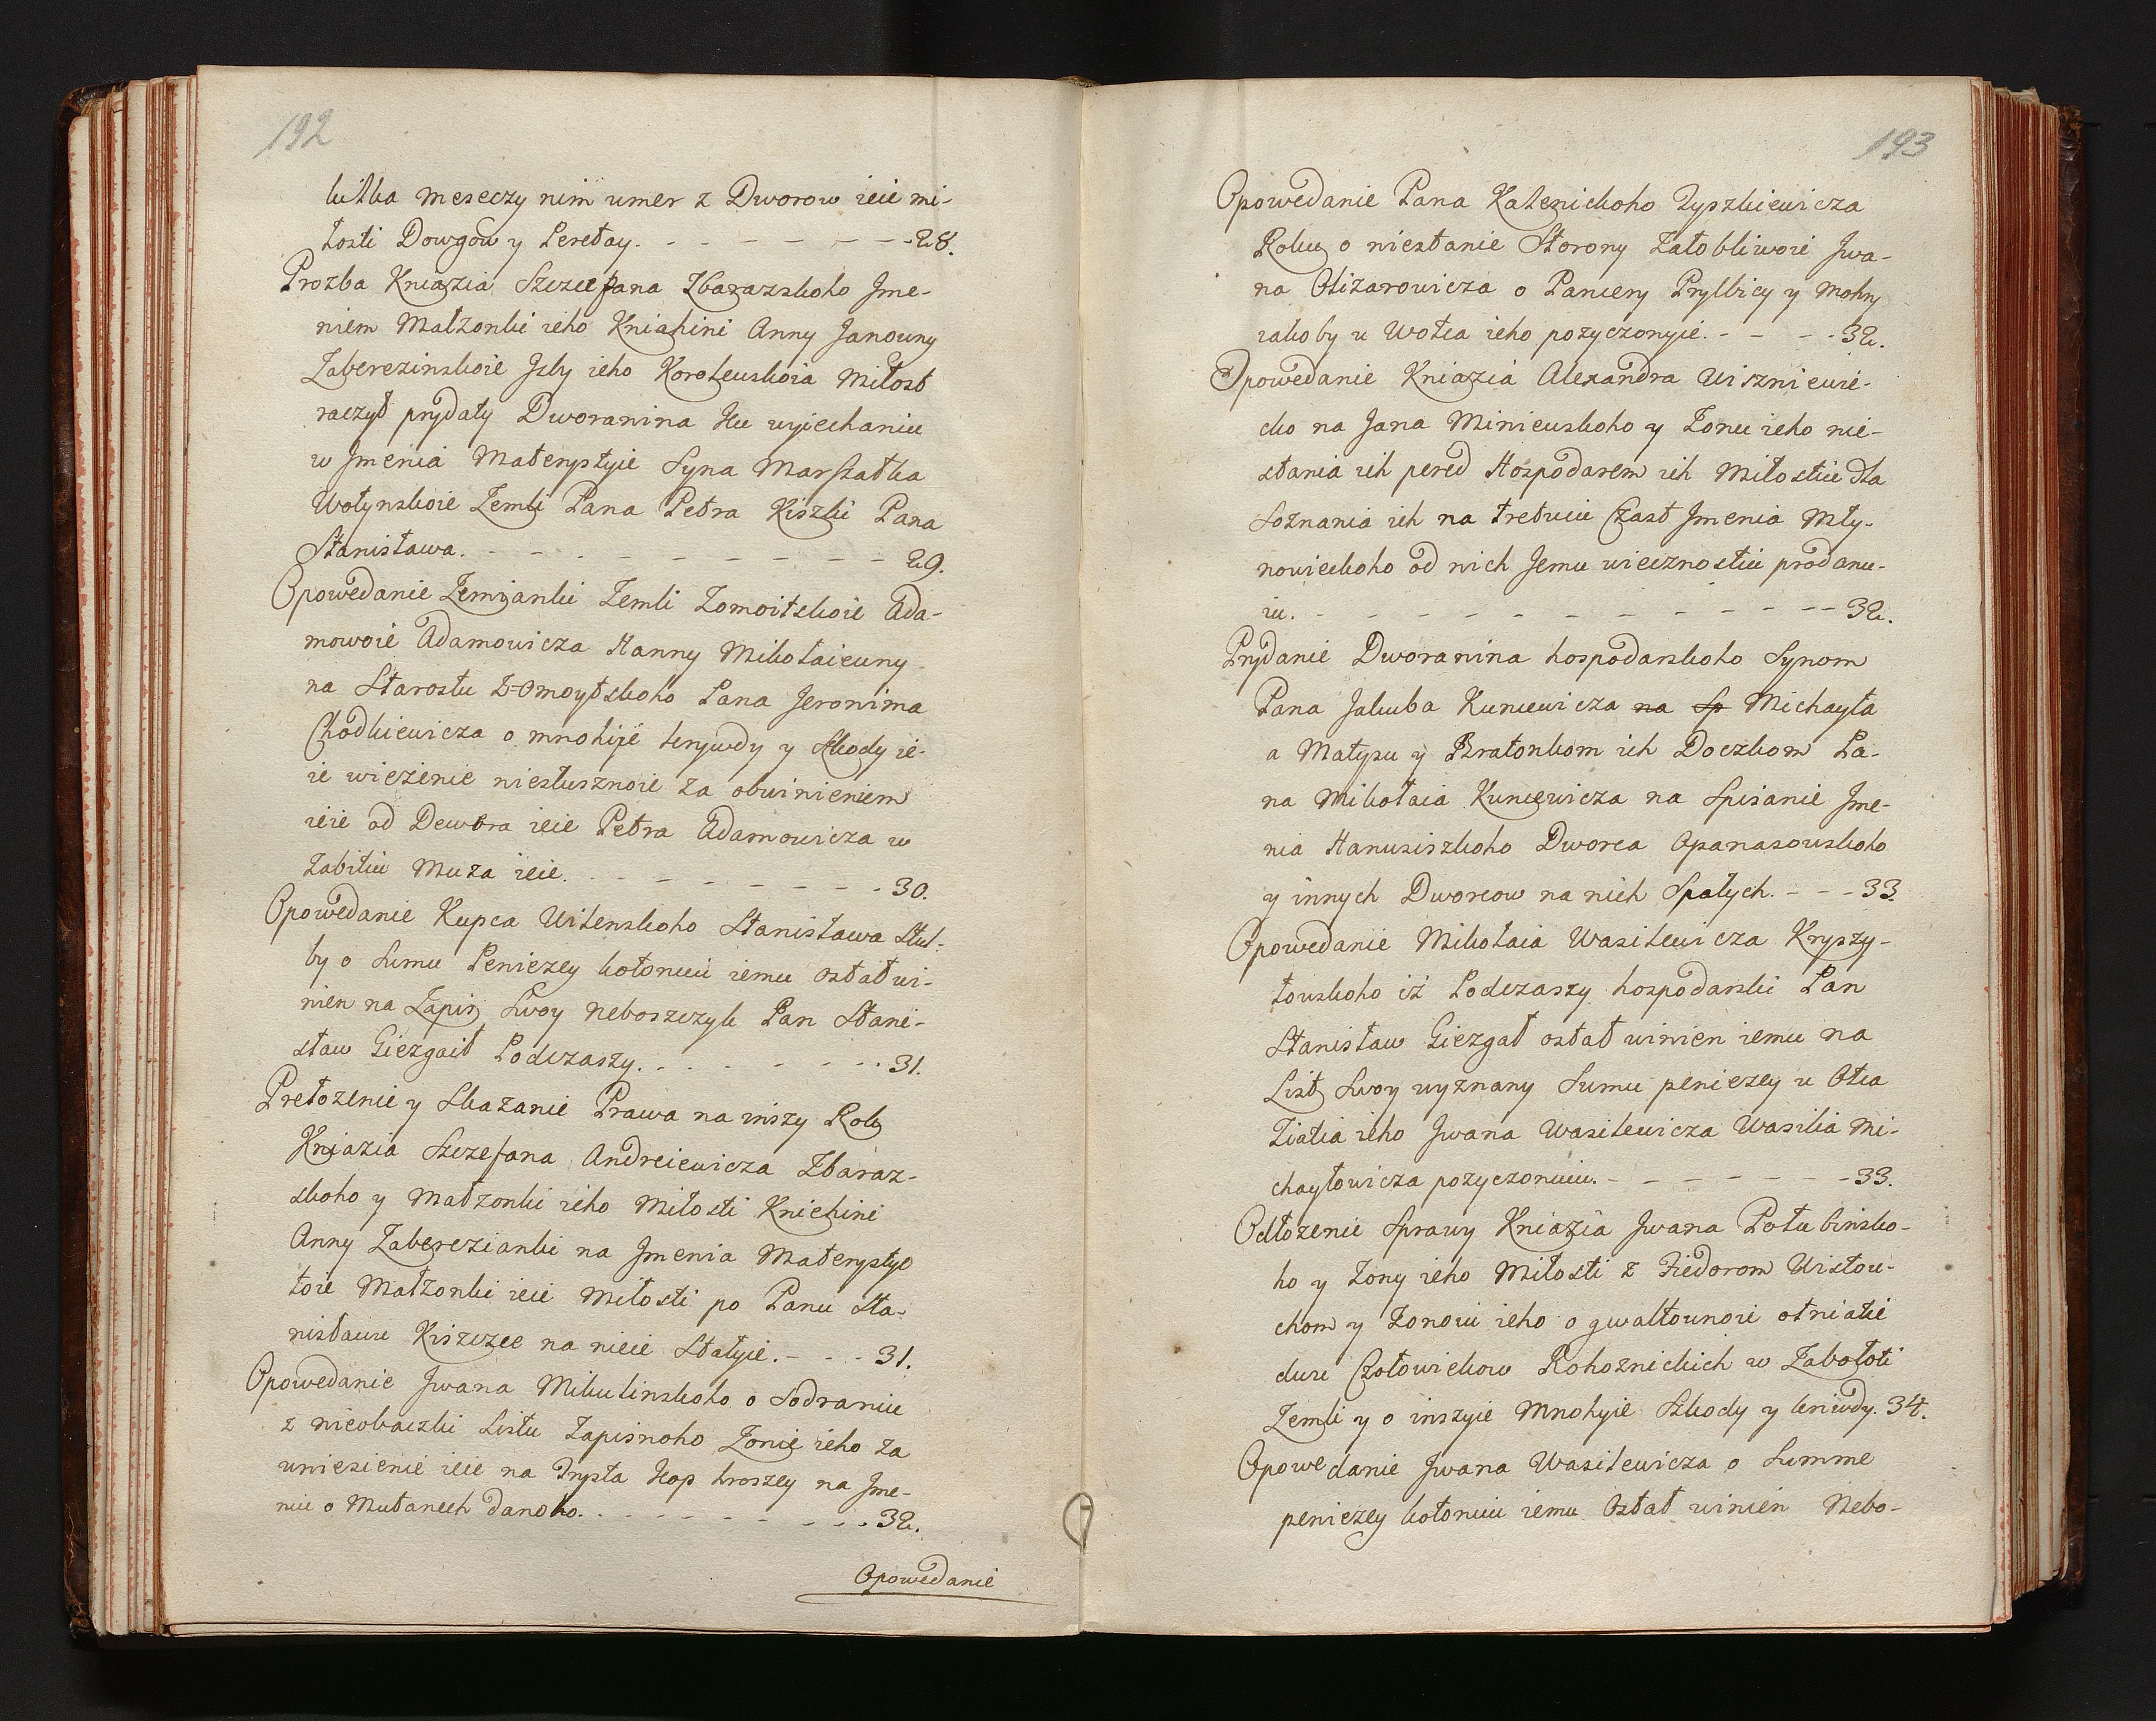 192
kilka meseczy nim umer z Dworow ieie mi-
łosti Dowgow y Peretay. - - - - - - - 28.
Prozba Kniazia Szczefana Zbarazskoho Jme-
niem Małzonki ieho Kniahini Anny Janowny
Zaberezinskoie Jsby ieho Korolewskoia Miłost
raczył prydaty Dworanina Hu wyiechaniu
w Jmenia Materystyie Syna Marszałka
Wołynskoie Zemli Pana Petra Kiszki Pana
Stanisława. - - - - - - - - - 29.
Opowedanie Zemianki Zemli Zomoitskoie Ada-
mowoie Adamowicza Hanny Mikołaiewny
na Starostu Z=omoytskoho Pana Jeronima
Chodkiewicza o mnohije krywdy y Skody ie-
ie wiezenie niesłusznoie za obwinieniem
ieie od Dewera ieie Petra Adamowicza w
Zabitiu Muza ieie. - - - - - - - 30.
Opowedanie Kupca Witenskoho Stanisława Skul-
by o Sumu Peniezey kotoruiu iemu ostał wi-
nien na Zapis Swoy neboszczyk Pan Stani-
sław Giezgait Podczaszy. - - - - - - 31.
Prełozenie y Skazanie Prawa na inszy Rok
Kniazia Szczefana Andreiewicza Zbaraz-
skoho y Małzonki ieho Miłosti Kniehini
Anny Zaberezianki na Jmenia Materystye
toie Małzonki ieie Miłosti po Panu Sta-
nisławu Kiszczee na nieie Stałyie. - - - 31.
Opowedanie Jwana Mikulinskoho o Sodraniu
z nieobaczki Listu Zapisnoho Zonie ieho za
uniesienie ieie na Trysta Kop hroszey na Jme-
niu o Mutanech danoho. - - - - - - - 32.
Opowedanie
193
Opowedanie Pana Kalenickoho Tyszkiewicza
Roku o niestanie Storony Załobliwoie Jwa-
na Olizarowicza o Pancery Pryłbicy y Mohry
iakoby u Wotca ieho pozyczonyie. - - - - 32.
Opowedanie Kniazia Alexandra Wiszniewie-
cko na Jana Miniewskoho y Zonu ieho nie-
stania ich pered Hospodarem ich Miłostiu dla
Soznania ich na tretuiu Czast Jmenia Mły-
nowieckoho od nich Jemu wiecznostiu prodanu-
iu. - - - - - - - - - - - 32.
Prydanie Dworanina hospodarskoho Synom
Pana Jakuba Kuncewicza na Sp Michayła
a Matysu y Bratonkom ich Doczkom Pa-
na Mikołaia Kuncewicza na Spisanie Jme-
nia Hanusiszkoho Dworca Opanasowskoho
y innych Dworcow na nich Spałych. - - - 33.
Opowedanie Mikołaia Wasilewicza Kryszy-
towskoho iż Podczaszy hospodarski Pan
Stanisław Giezgał ostał winien iemu na
List Swoy wyznany Sumu peniezey u Otca
Ziatia ieho Jwana Wasilewicza Wasilia Mi-
chayłowicza pozyczonuiu. - - - - - - 33.
Odłozenie Sprawy Kniazia Jwana Połubinsko-
ho y Zony ieho Miłosti z Fiedorom Wistou-
chom y Zonoiu ieho o gwałtownoie otniatie
dwu Czołowickow Rohoznickich w Zabołoti
Zemli y o inszyie Mnohyie Szkody y kriwdy. 34.
Opowedanie Jwana Wasilewicza o Summe
peniezey kotoruiu iemu Ostał winien Nebo-